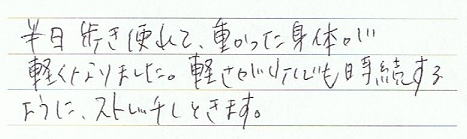 半日歩き疲れて、重かった身体が
軽くなりました。軽さが少しでも持続する
ように、ストレッチしときます。